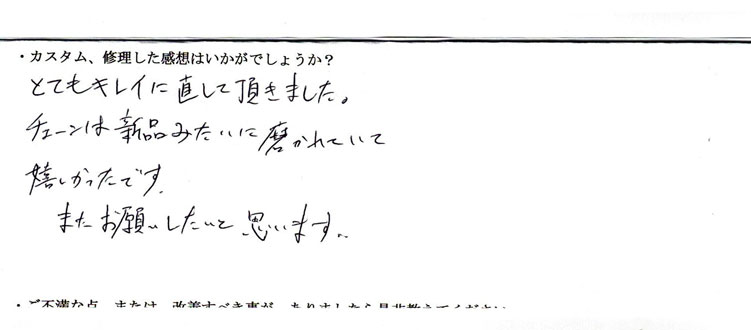 ・カスタム、修理した感想はいかがでしょうか？
とてもキレイに直して頂きました。
チェーンは新品みたいに磨かれていて
嬉しかったです。
またお願いしたいと思います。
・ご不満な点、または、改善すべき事が、ありましたら是非教えてください